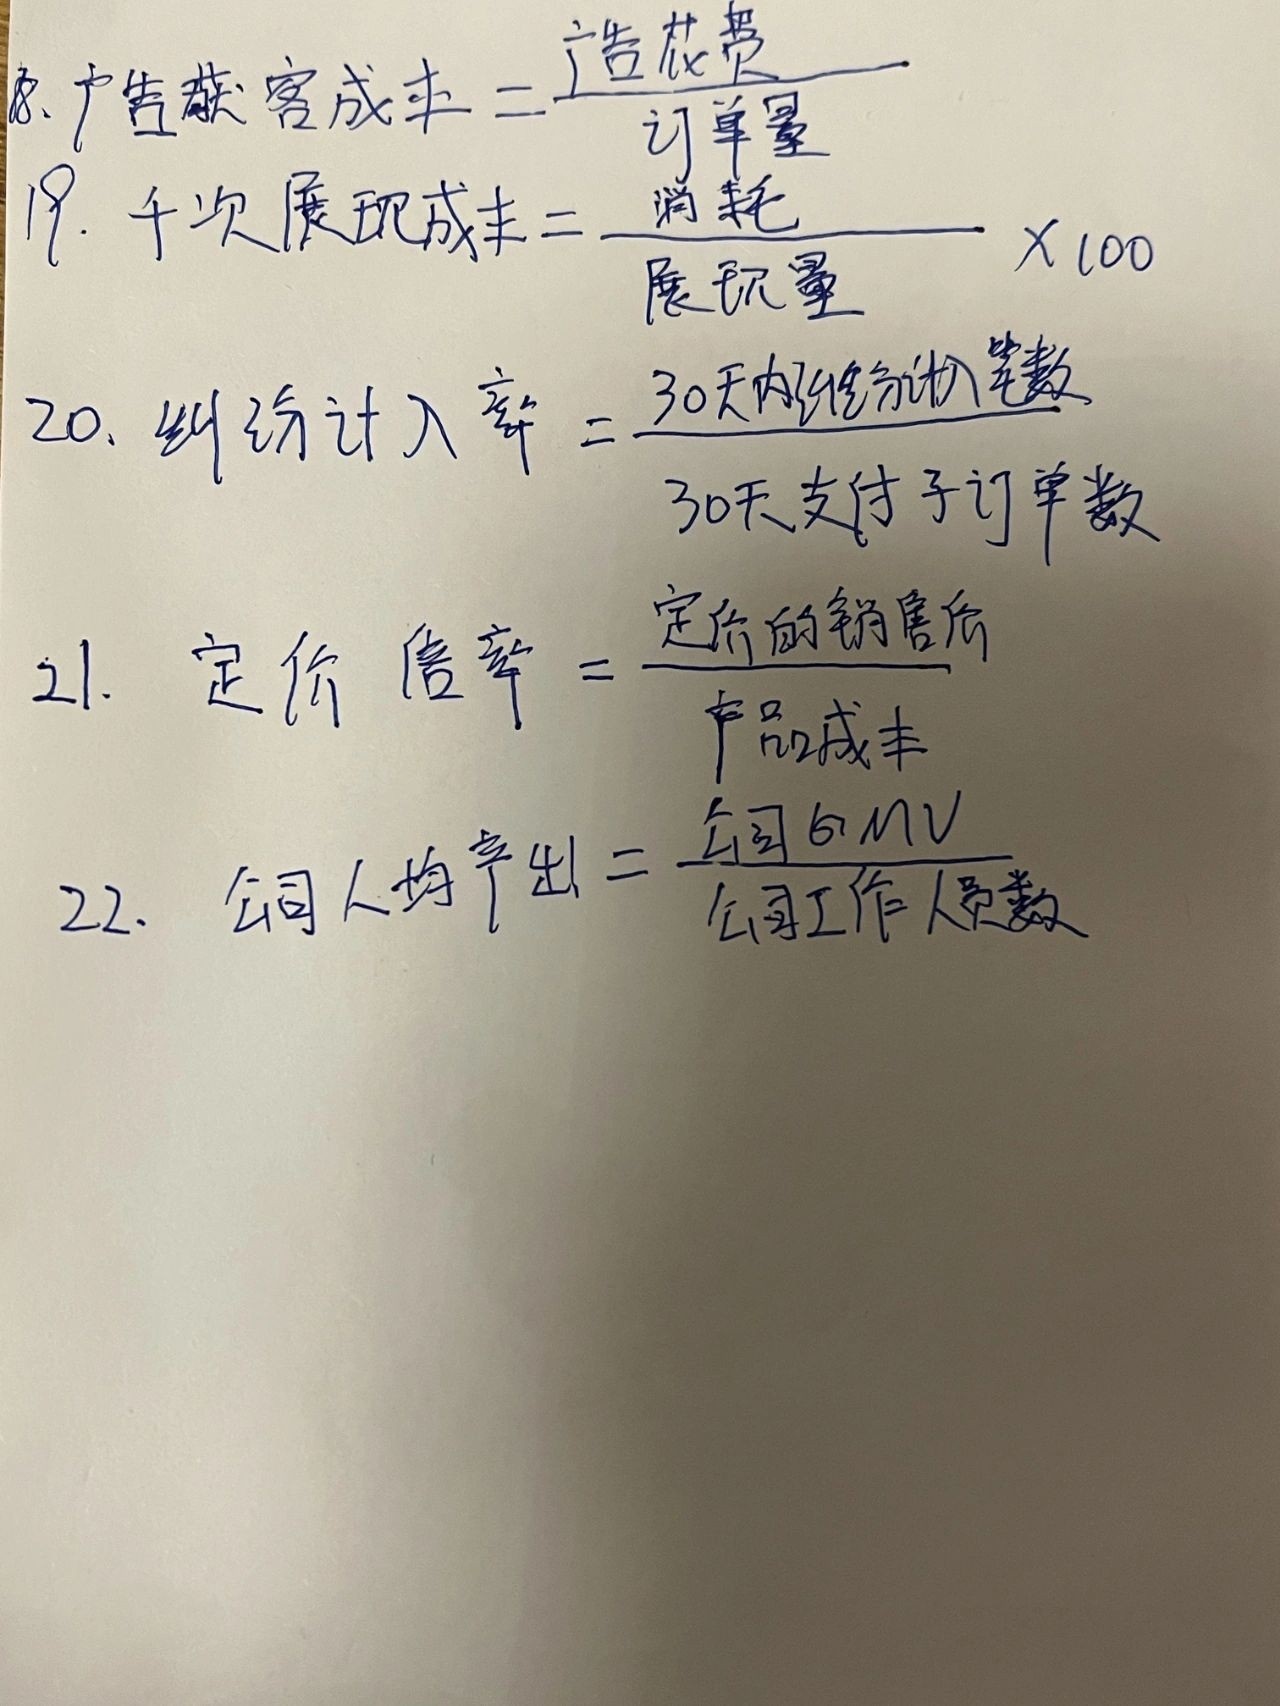 8. 广告获客成本 = 广告花费 / 订单量
19. 千次展现成本 = 消耗 / 展现量 × 100
20. 纠纷计入率 = 30天内纠纷计入笔数 / 30天支付子订单数
21. 定价倍率 = 定价的销售价 / 产品成本
22. 公司人均产出 = 公司GMV / 公司工作人员数